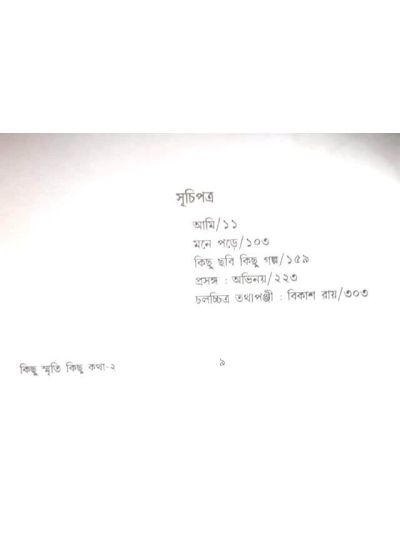 সূচিপত্র
আমি/১১
মনে পড়ে/১০৩
কিছু ছবি কিছু গল্প/১৫৯
প্রসঙ্গ : অভিনয়/২২৩
চলচ্চিত্র তথ্যপঞ্জী : বিকাশ রায়/৩০৩
কিছু স্মৃতি কিছু কথা-২ ৯